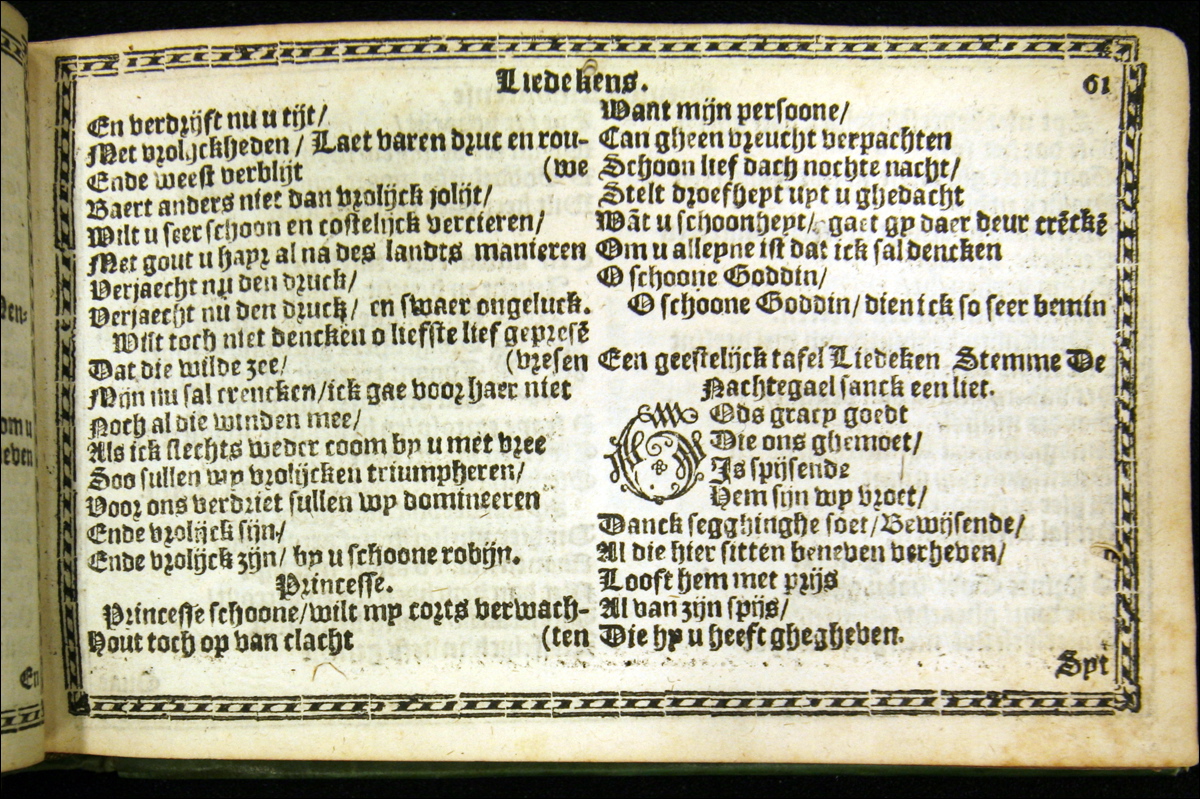 Liedekens.
61
En verdrijft nu u tijt/
Met vrolijckheden / Laet varen druc en rou-
Ende weest verblijt (we
Baert anders niet dan vrolijck jolijt/
Wilt u seer schoon en costelijck vercieren/
Met gout u hayr al na des landts manieren
Verjaecht nu den druck/
Verjaecht nu den druck/ en swaer ongeluck.
Wilt toch niet dencken o liefste lief gepresē
Dat die wilde zee/ (vresen
Mijn nu sal crencken/ick gae voor haer niet
Noch al die winden mee/
Als ick slechts weder coom by u met vree
Soo sullen wy vrolijcken triumpheren/
Voor ons verdriet sullen wy domineeren
Ende vrolijck sijn/
Ende vrolijck zijn/ by u schoone robijn.
Princesse.
Princesse schoone/wilt my corts verwach-
Hout toch op van clacht (ten
Want mijn persoone/
Can gheen vreucht verpachten
Schoon lief dach nochte nacht/
Stelt droefheyt uyt u ghedacht
Wāt u schoonheyt/ gaet gy daer deur crēckē
Om u alleyne ist dat ick sal dencken
O schoone Goddin/
O schoone Goddin/ dien ick so seer bemin
Een geestelijck tafel Liedeken Stemme De
Nachtegael sanck een liet.
GOds gracy goedt
Die ons ghemoet/
Is spijsende
Hem sijn wy vroet/
Danck segghinghe soet/Bewijsende/
Al die hier sitten beneven verheven/
Looft hem met prijs
Al van zijn spijs/
Die hy u heeft ghegheven.
Spi
Den-
om u
even
En